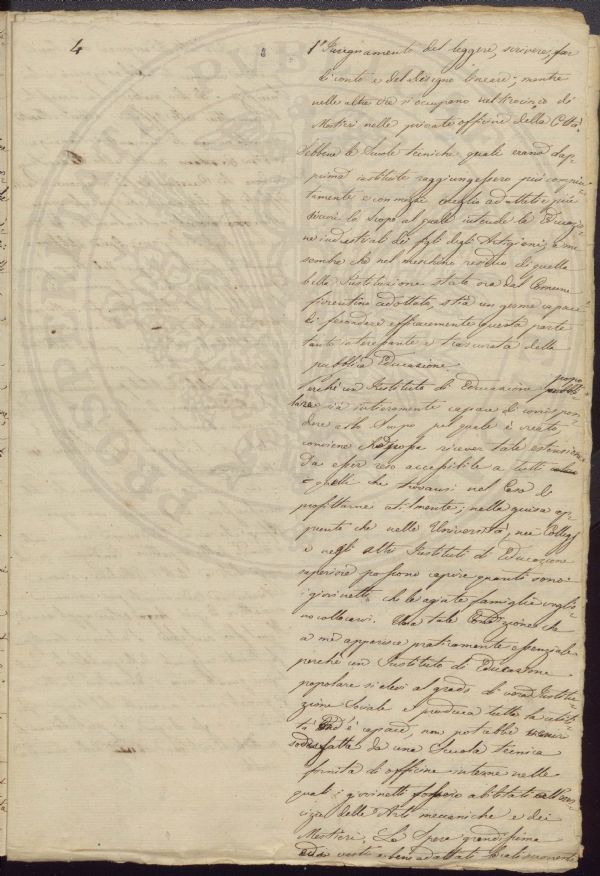 4
1° Insegnamento del leggere, scrivere, far
di conto e del disegno lineare; mentre
nelle altre ore si occupano nel tirocinio di
Mestieri nelle private officine della Città.
Sebbene le Scuole tecniche quali erano dap-
prima instituite raggiungessero più compiu-
tamente e con modi meglio adattati e più
sicuri lo scopo al quale intende la Educazio-
ne industriale dei figli degli Artigiani, a me
sembra che nel meschino residuo di quella
bella Instituzione stato ora dal Comune
fiorentino adottato, stia un germe capace
di fecondare efficacemente questa parte
tanto interessante e trascurata della
pubblica Educazione.
Perché un Instituto di Educazione popo-
lare sia interamente capace di corrispon-
dere allo Scopo pel quale è creato
conviene che possa ricever tale estensione
da esser reso accessibile a tutti
quelli che trovansi nel Caso di
profittarne utilmente; nella guisa ap-
punto che nelle Università, nei Collegj
e negli altri Instituti di Educazione
superiore possono capire quanti sono
i giovinetti che le agiate famiglie voglio-
no collocarvi. Ora tale Condizione che
a me apparisce praticamente essenziale
perché un Instituto di Educazione
popolare si elevi al grado di vera Institu-
zione Sociale e produca tutta la utilità
di cui è capace, non potrebbe venir
sodisfatta da una Scuola tecnica
fornita di officine interne nelle
quali i giovinetti fossero abilitati all'Eser-
cizio delle Arti meccaniche e dei
Mestieri. Le Spese grandissime
vasti e bene adattati